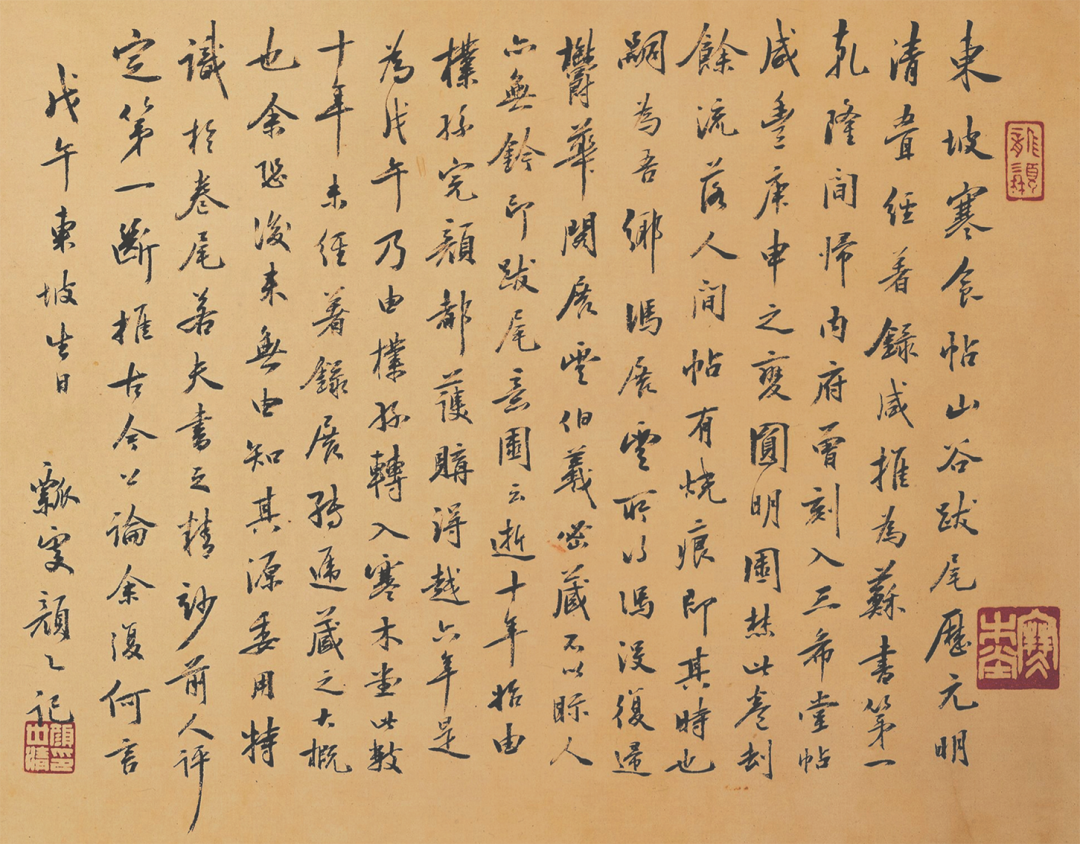 東坡寒食帖山谷跋尾歷元明
清疊經著錄咸推為蘇書第一
乾隆間歸內府曾刻入三希堂帖
咸豐庚申之變圓明園焚此卷刦
餘流落人間帖有燒痕即其時也
嗣為吾鄉馮展雲所得馮沒復歸
鬱華閣展雲伯羲密藏不以眎人
亦無鈐印跋尾意園云逝十年始由
樸孫完顏都護購得越六年是
為戊午乃由樸孫轉入寒木堂此數
十年未經著錄展轉遞藏之大概
也余恐後來無由知其源委用特
識於卷尾若夫書之精妙前人評
定第一斷推古今公論余復何言
戊午東坡生日 瓢叟顏之記